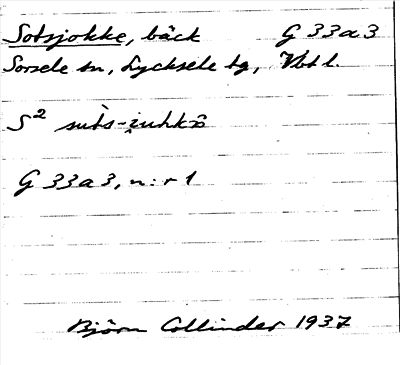 Sotsjokke, bäck G 33a3
Sorsele sn, Lycksele tg, Vbtl.
S²
G 33a3, n:r 1
Björn Collinder 1937